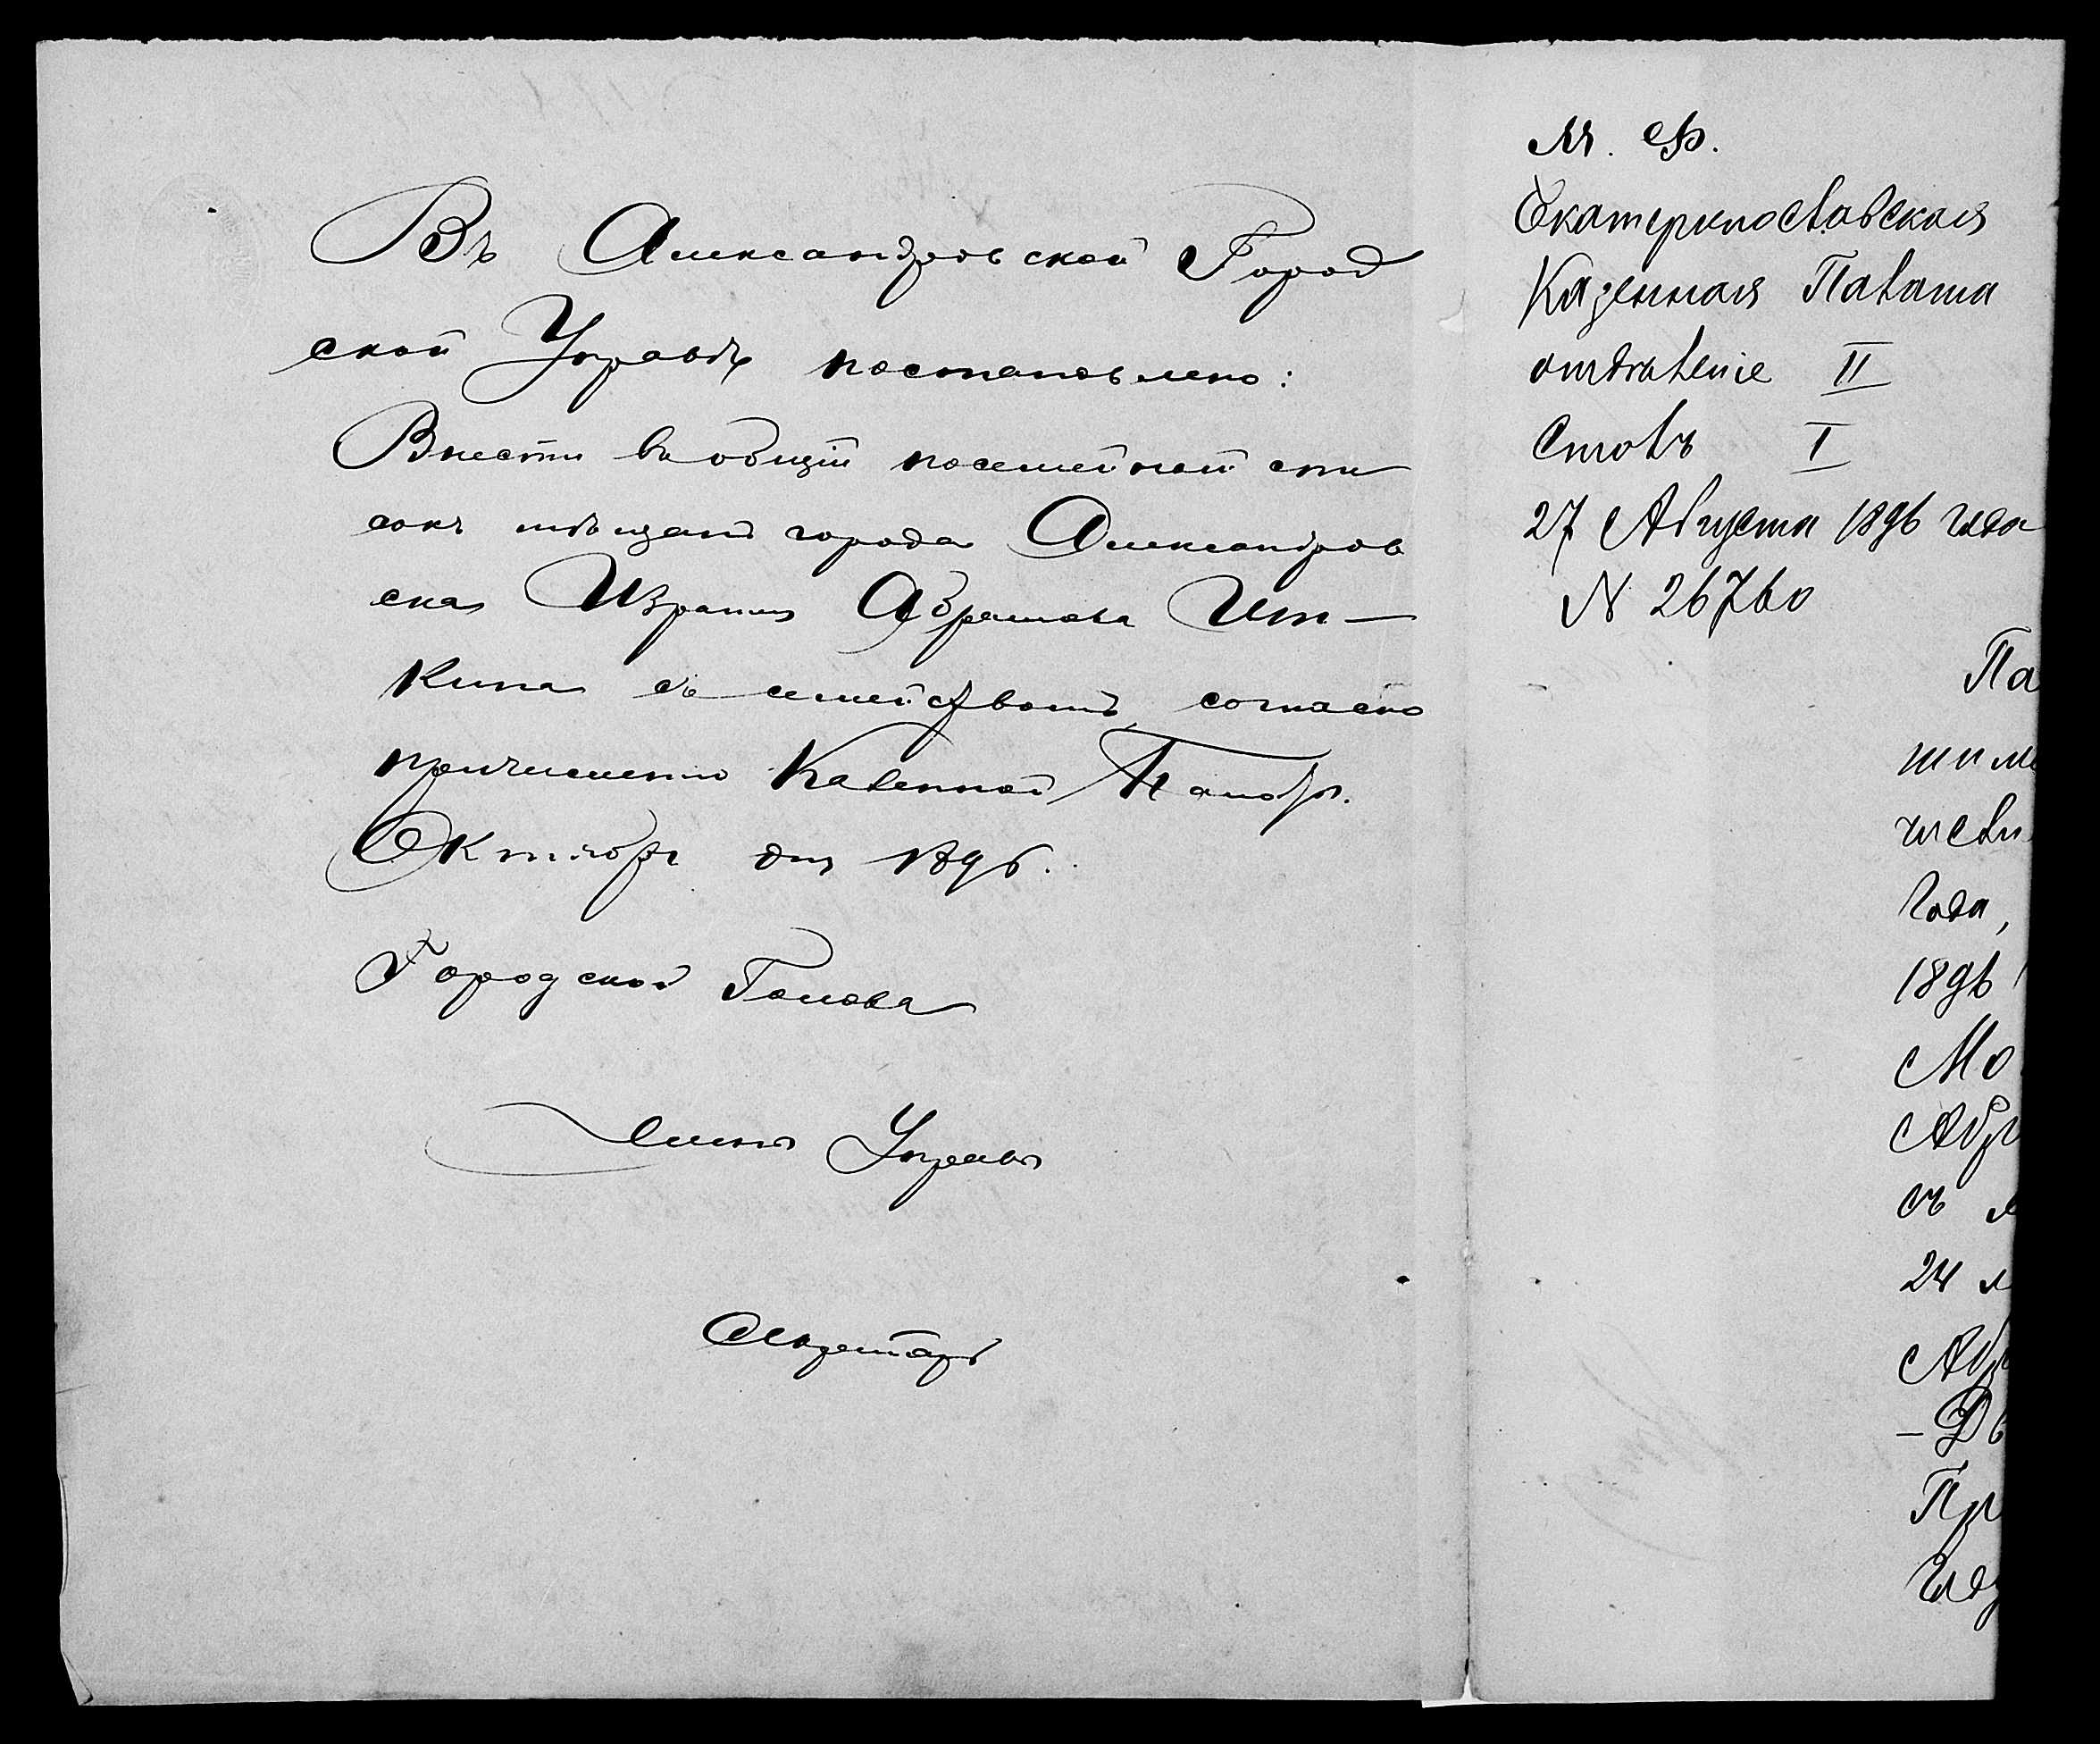 Въ Александровской Город
ской Управѣ постановлено:
Внести въ общій посемейный спи
сокъ мѣщанъ города Александров
ска Израиля Абрамова Ит-
кина съ семействомъ, согласно
причисленію Казенной Палаты.
Октября дня 1896.
Городской Голова
Члены Управы
Секретарь
М. Ф.
Екатеринославская
Казенная Палата
отдѣленіе II
Столъ I
27 Августа 1896 года
N 26760
Па
года,
1896
Мо
Абр
съ
24
Абр
Пр